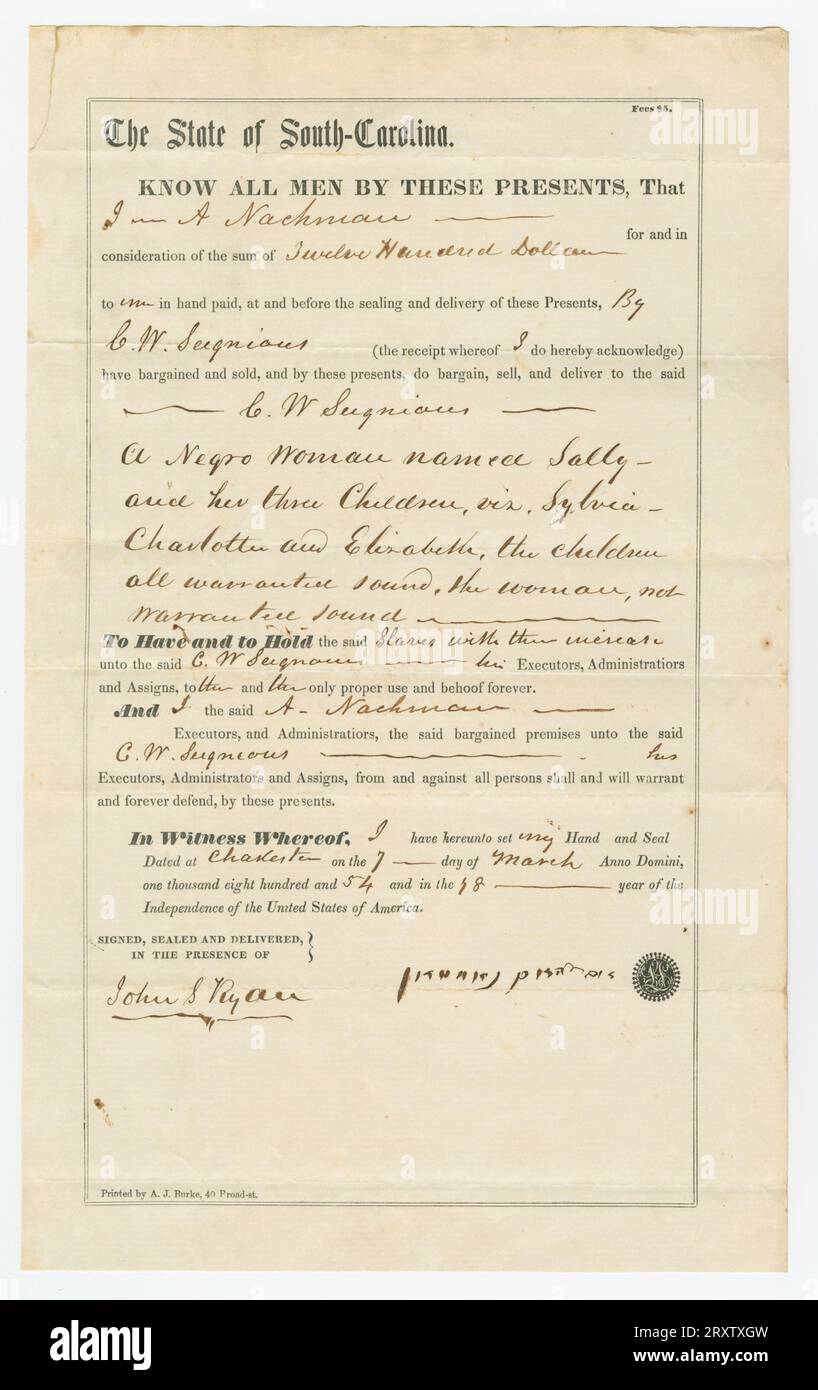 Fees $5.
The State of South-Carolina.
KNOW ALL MEN BY THESE PRESENTS, That
I A Nachman
for and in
consideration of the sum of Twelve Hundred Dollars
to me in hand paid, at and before the sealing and delivery of these Presents, By
C. W. Seignious (the receipt whereof I do hereby acknowledge)
have bargained and sold, and by these presents, do bargain, sell, and deliver to the said
C. W Seignious
A Negro Woman named Sally
and her three Children, viz, Sylvia
Charlotte and Elizabeth, the children
all warranted sound, the woman, not
warranted sound
To Have and to Hold the said Slaves with their increase
unto the said C. W Seignious his Executors, Administratiors
and Assigns, to their and the only proper use and behoof forever.
And I the said A- Nachman
Executors, and Administratiors, the said bargained premises unto the said
C. W. Seignious his
Executors, Administrators and Assigns, from and against all persons shall and will warrant
and forever defend, by these presents.
In Witness Whereof, I have hereunto set my Hand and Seal
Dated at Charleston on the 7 day of March Anno Domini,
one thousand eight hundred and 54 and in the 78 year of the
Independence of the United States of America.
SIGNED, SEALED AND DELIVERED,
IN THE PRESENCE OF
John S Ryan
Printed by A. J. Burke, 40 Broad-st.
alamy
Image ID: 2RXTXGW
www.alamy.com